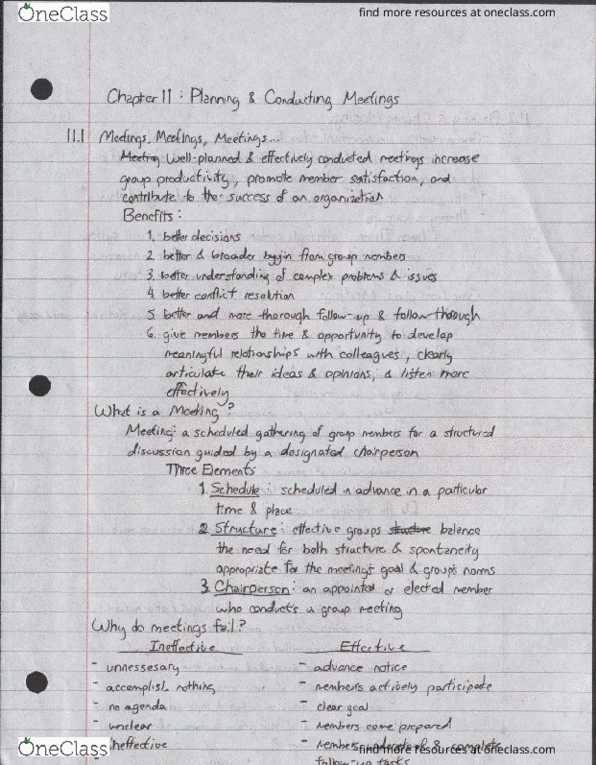 OneClass
find more resources at oneclass.com
Chapter 11 : Planning & Conducting Meetings
11.1 Meetings, Meetings, Meetings...
Meeting Well-planned & effectively conducted meetings increase
group productivity, promote member satisfaction, and
contribute to the success of an organization
Benefits :
1. better decisions
2. better & broader buyin from group members
3. better understanding of complex problems & issues
4. better conflict resolution
5 better and more thorough follow-up & follow through
6. give members the time & opportunity to develop
meaningful relationships with colleagues, clearly
articulate their ideas & opinions, & listen more
effectively
What is a Meeting ?
Meeting: a scheduled gathering of group members for a structured
discussion guided by a designated chairperson
Three Elements
1. Schedule : scheduled in advance in a particular
time & place
2. Structure : effective groups structure balance
the need for both structure & spontaneity
appropriate for the meeting's goal & group's norms
3. Chairperson : an appointed or elected member
who conducts a group meeting
Why do meetings fail?
Ineffective Effective
- unnessesary - advance notice
- accomplish nothing - members actively participate
- no agenda - clear goal
- unclear - members come prepared
ineffective - members & complete
follow-up tasks
OneClass
find more resources at oneclass.com